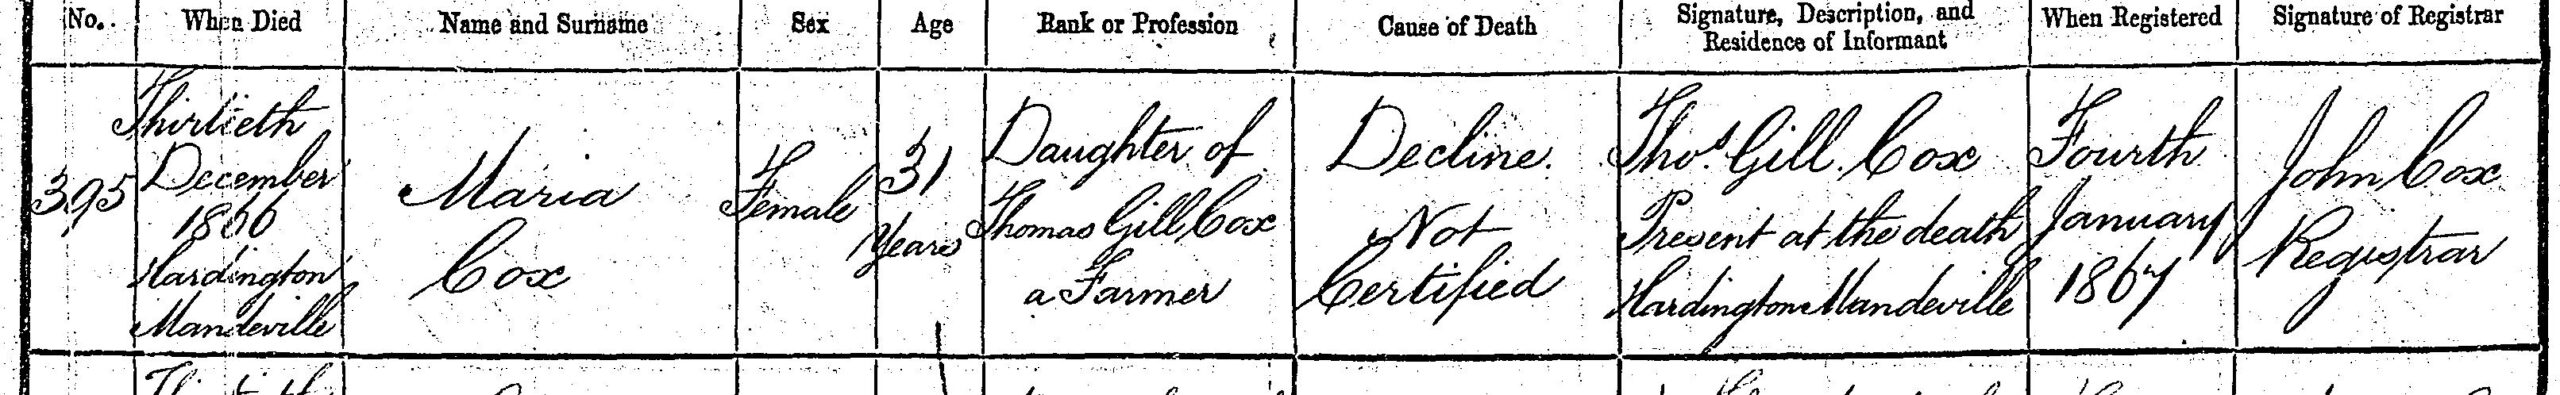 No. When Died Name and Surname Sex Age Rank or Profession Cause of Death Signature, Description, and Residence of Informant When Registered Signature of Registrar
395
Thirtieth
December
1866
Hardington
Mandeville
Maria
Cox
Female
31
Years
Daughter of
Thomas Gill Cox
a Farmer
Decline.
Not
Certified
Thos. Gill Cox
Present at the death
Hardington Mandeville
Fourth
January
1867
John Cox
Registrar